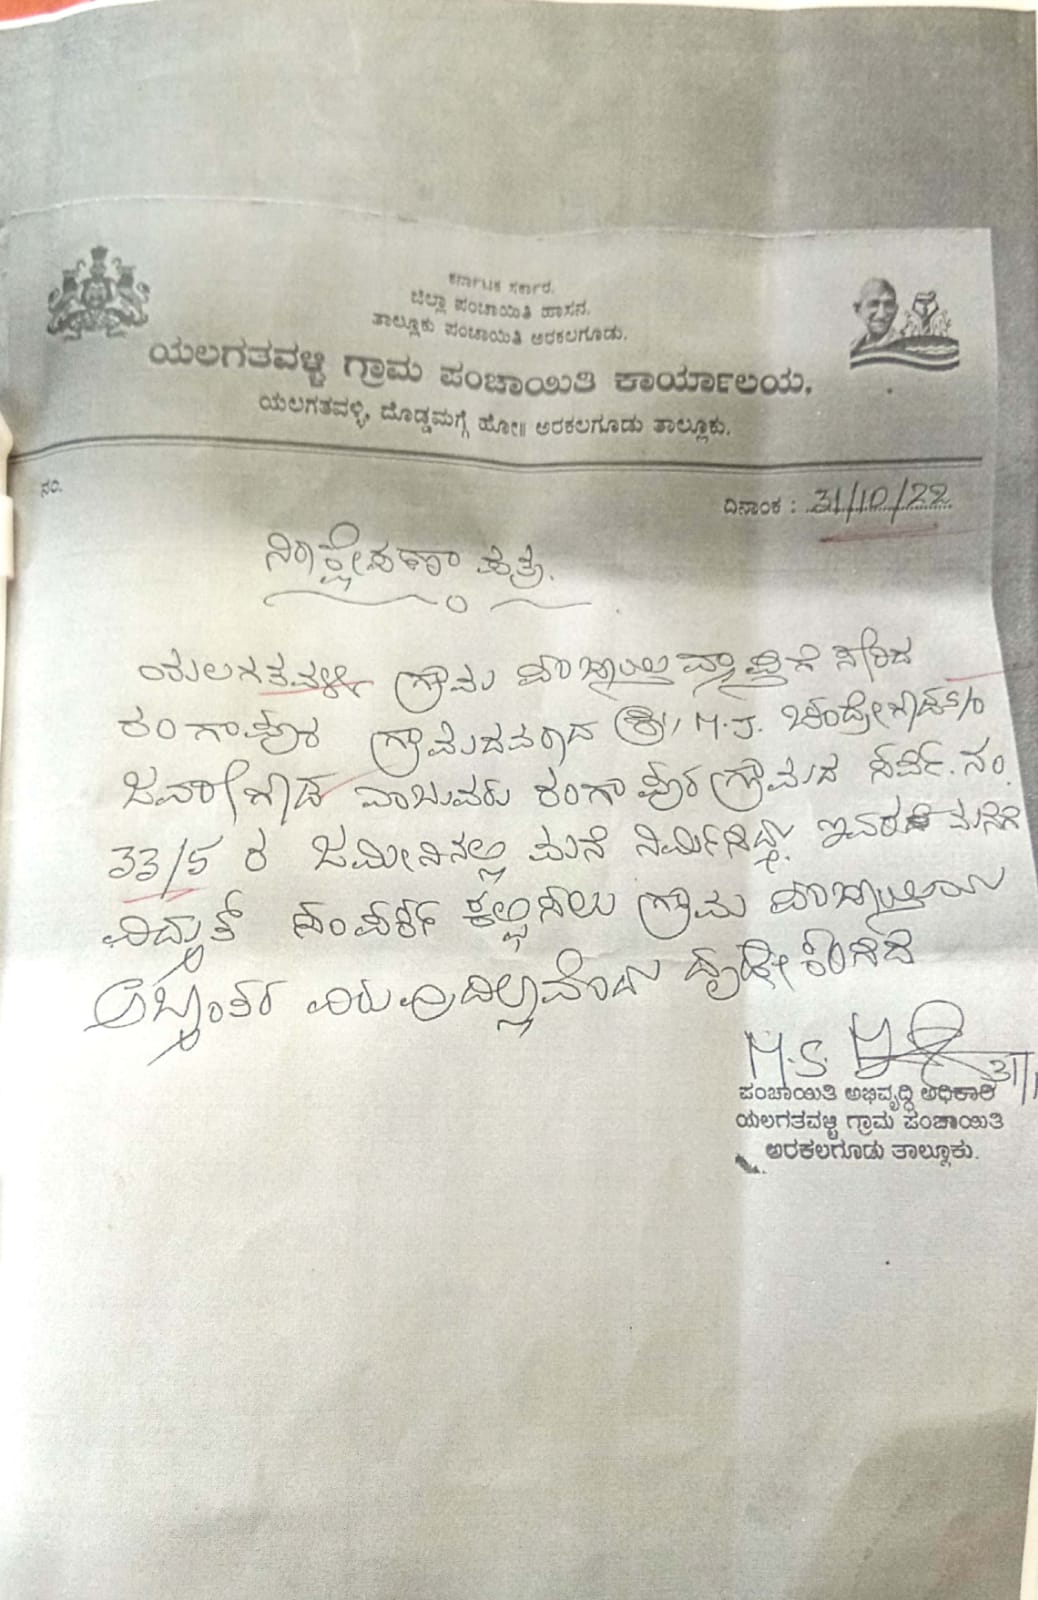 ಕರ್ನಾಟಕ ಸರ್ಕಾರ.
ಜಿಲ್ಲಾ ಪಂಚಾಯಿತಿ ಹಾಸನ.
ತಾಲ್ಲೂಕು ಪಂಚಾಯಿತಿ ಅರಕಲಗೂಡು.
ಯಲಗತವಳ್ಳಿ ಗ್ರಾಮ ಪಂಚಾಯಿತಿ ಕಾರ್ಯಾಲಯ,
ಯಲಗತವಳ್ಳಿ, ದೊಡ್ಡಮಗ್ಗೆ ಹೋ॥ ಅರಕಲಗೂಡು ತಾಲ್ಲೂಕು.
ನಂ.
ದಿನಾಂಕ : 31/10/22
ನಿರಾಕ್ಷೇಪಣಾ ಪತ್ರ.
ಯಲಗತವಳ್ಳಿ ಗ್ರಾಮ ಪಂಚಾಯಿತಿ ವ್ಯಾಪ್ತಿಗೆ ಸೇರಿದ
ರಂಗಾಪುರ ಗ್ರಾಮದವರಾದ ಶ್ರೀ, M.J. ಚಂದ್ರೇಗೌಡ S/o
ಜವರೇಗೌಡ ರಂಗಾಪುರ ಗ್ರಾಮದ ಸರ್ವೆ. ನಂ.
33/5 ರ ಜಮೀನಿನಲ್ಲಿ ಮನೆ ನಿರ್ಮಿಸಿದ್ದು. ಇವರ ಮನೆಗೆ
ವಿದ್ಯುತ್ ಸಂಪರ್ಕ ಕಲ್ಪಿಸಲು ಗ್ರಾಮ ಪಂಚಾಯ್ತಿಯ
ಅಭ್ಯಂತರ ವಿರುವುದಿಲ್ಲವೆಂದು ದೃಢೀಕರಿಸಿದೆ
M.S.
31/1
ಪಂಚಾಯಿತಿ ಅಭಿವೃದ್ಧಿ ಅಧಿಕಾರಿ
ಯಲಗತವಳ್ಳಿ ಗ್ರಾಮ ಪಂಚಾಯಿತಿ
ಅರಕಲಗೂಡು ತಾಲ್ಲೂಕು.